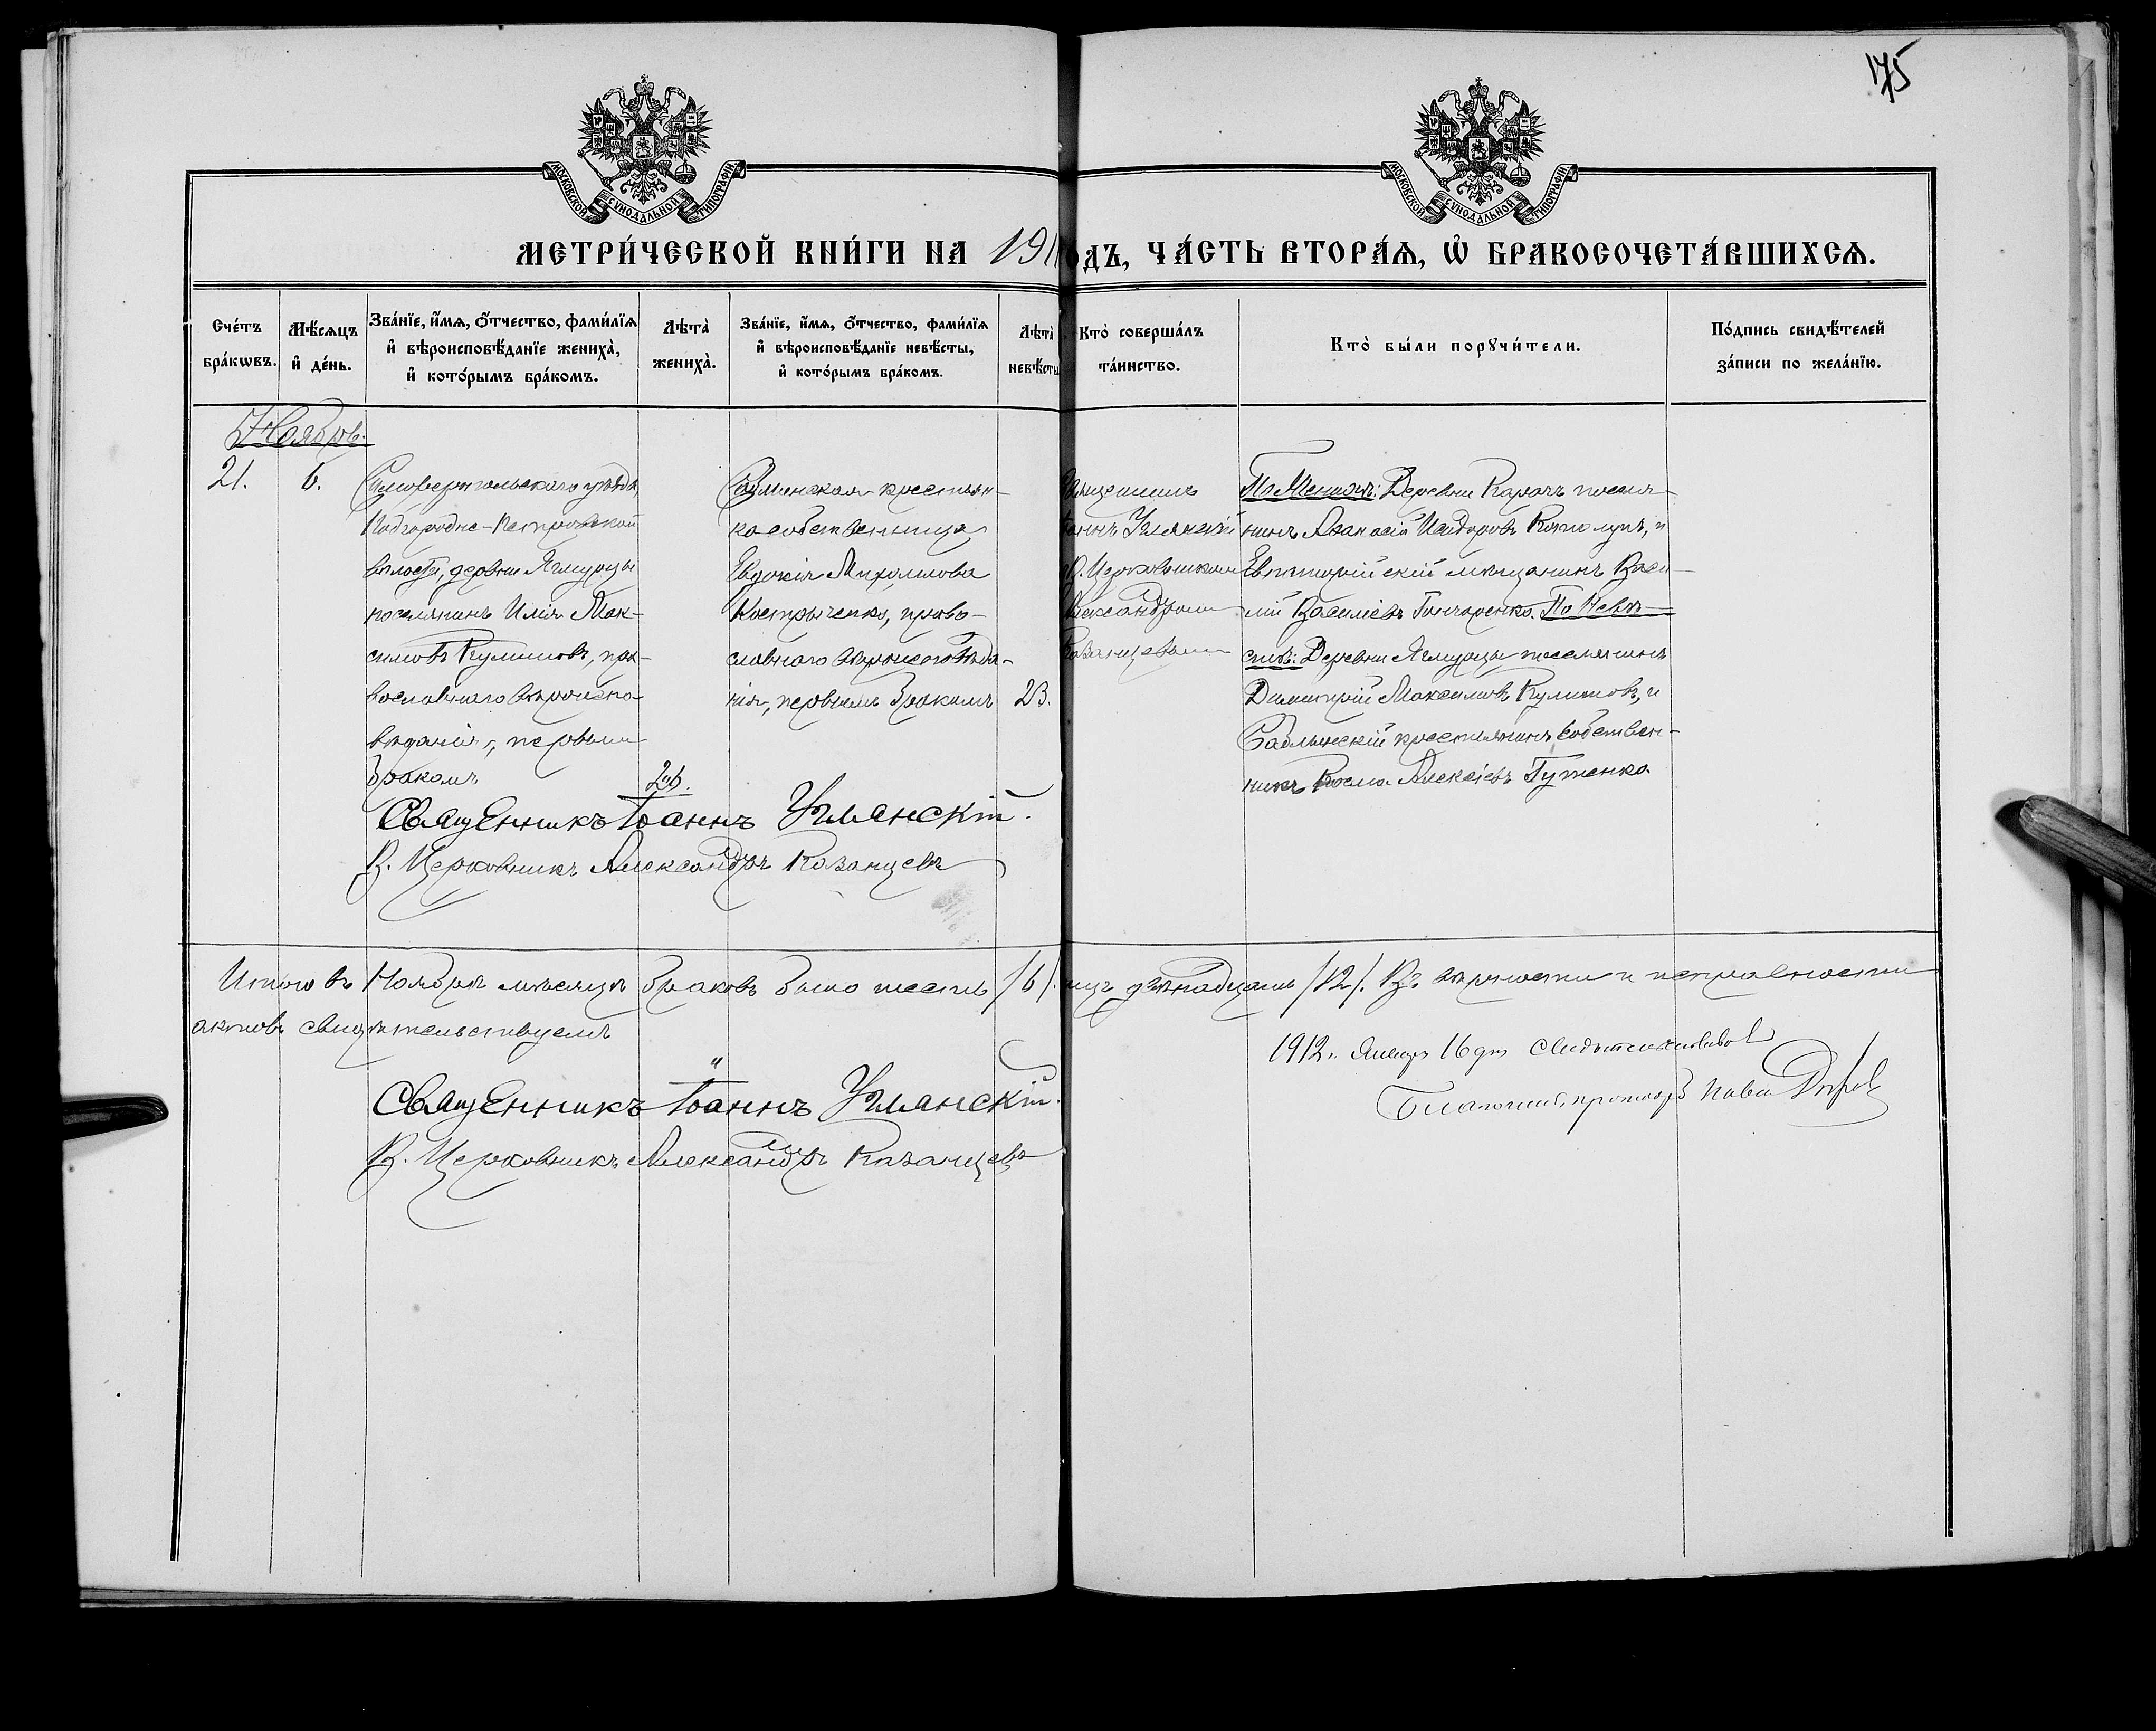 175
МОСКОВСКОЙ СѴНОДАЛЬНОЙ ТИПОГРАФІИ
МОСКОВСКОЙ СѴНОДАЛЬНОЙ ТИПОГРАФІИ
МЕТРИ́ЧЕСКОЙ КНИ́ГИ НА 191
одъ, ЧА́СТЬ ВТОРА́Ѧ, Ѽ БРАКОСОЧЕТА́ВШИХСѦ.
Сче́тъ бра́кѡвъ.
Мѣ́сѧцъ и҆ де́нь.
Зва́нїе, и҆́мѧ, ѻ҆́тчество, фами́лїѧ и҆ вѣроисповѣ́данїе жениха̀, и҆ кото́рымъ бра́комъ.
Лѣта̀ жениха̀.
Зва́нїе, и҆́мѧ, ѻ҆́тчество, фами́лїѧ и҆ вѣроисповѣ́данїе невѣ́сты, и҆ кото́рымъ бра́комъ.
Лѣта̀ невѣ́сты
Кто̀ соверша́лъ та́инство.
Кто̀ бы́ли порꙋчи́тели.
По́дпись свидѣ́телей за́писи по жела́нїю.
Ноябрь.
21.
6.
Симферопольскаго уѣзда,
Подгородне-Петровской
волости, деревни
поселянинъ Илія Мак-
симовъ Куликовъ, пра-
вославнаго вѣроиспо-
вѣданія, первымъ
бракомъ
26.
Садлинская крестьян-
ка собственница
Евдокія Михаилова
Костыченко, право-
славнаго вѣроисповѣда-
нія, первымъ бракомъ
23.
Священникъ
Іоаннъ Уманскій
В. Церковникомъ
Александромъ
Казанцевымъ
По Женихѣ: Деревни Карачъ поселя-
нинъ Аѳанасій Исидоровъ и
Евпаторійскій мѣщанинъ Васи-
лій Василіевъ Гончаренко. По Невѣ-
стѣ: Деревни поселянинъ
Димитрій Максимовъ Куликовъ, и
Садлинскій крестьянинъ собствен-
никъ Косма Алексіевъ Гутенко.
Священникъ Іоаннъ Уманскій.
В. Церковникъ Александръ Казанцевъ
Итого въ Ноябрѣ мѣсяцѣ браковъ было шесть /6/.
лицъ двѣнадцать /12/. Въ вѣрности и исправности
актовъ свидѣтельствуемъ
Священникъ Іоаннъ Уманскій.
В. Церковникъ Александръ Казанцевъ
1912 г. Января 16 дня свидѣтельствовалъ